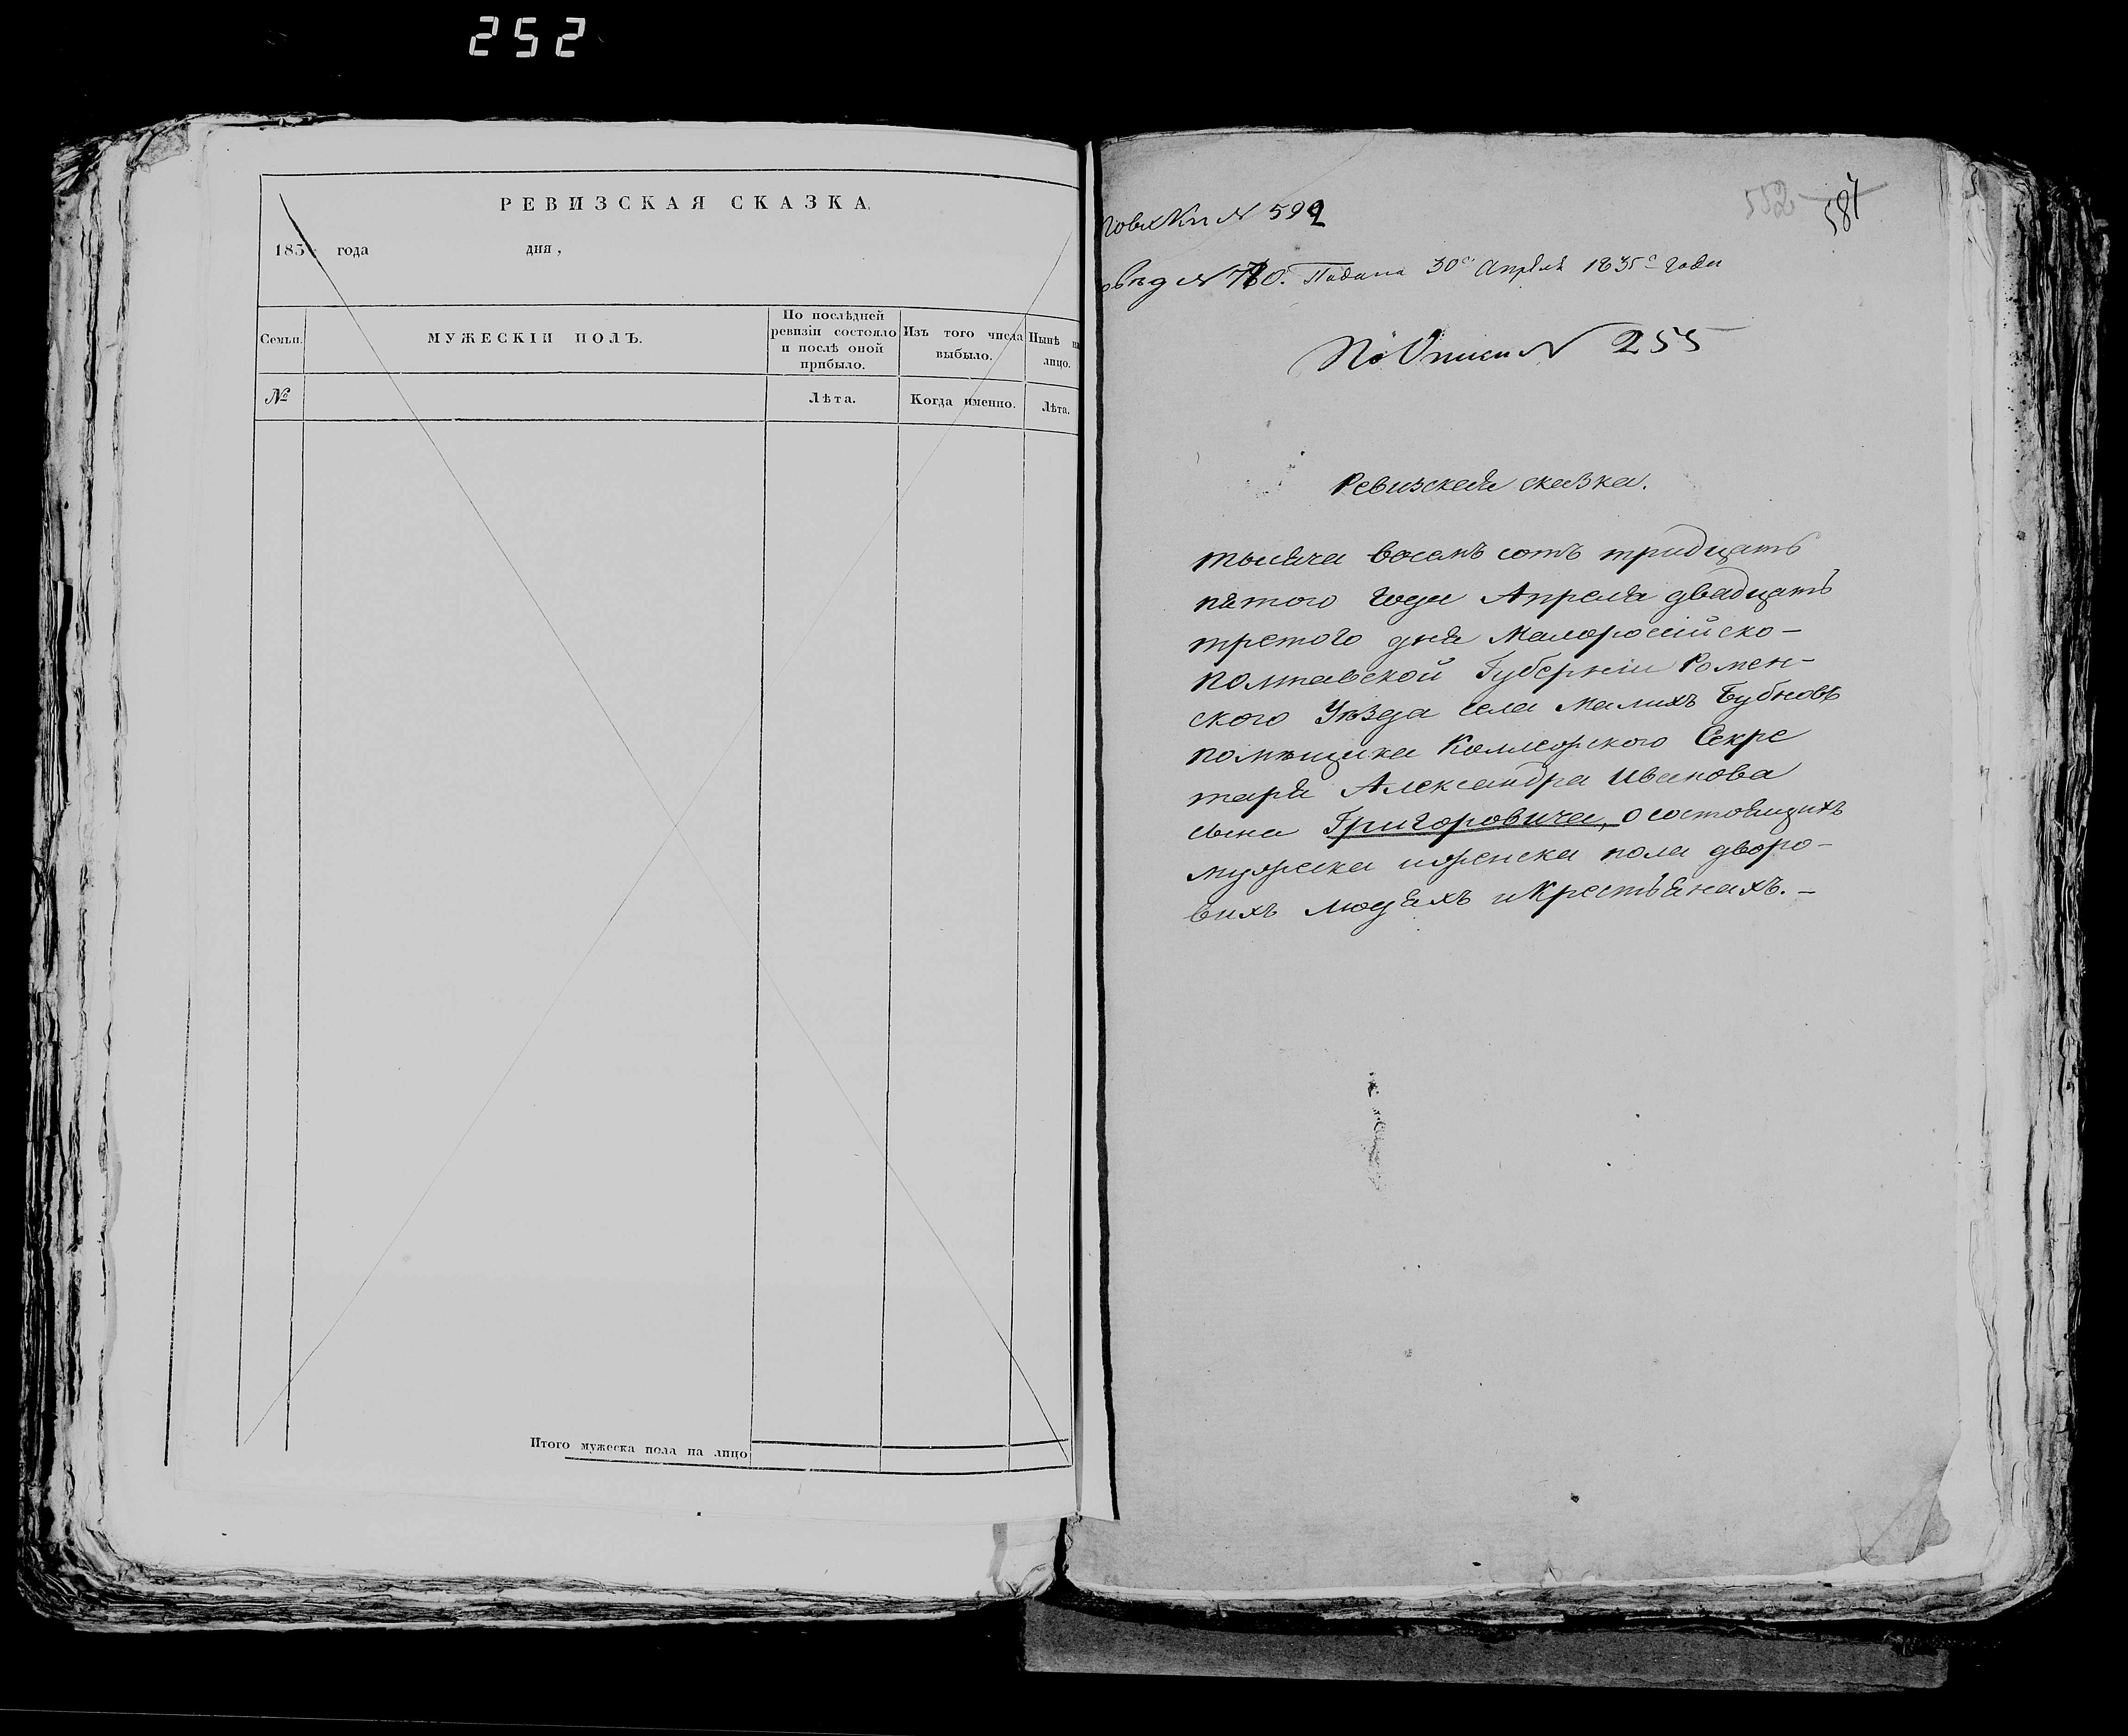 252
РЕВИЗСКАЯ СКАЗКА,
183 года дня,
Семьи.
МУЖЕСКІЙ ПОЛЪ.
По послѣдней
ревизіи состояло
и послѣ оной
прибыло.
Изъ того числа
выбыло.
Нынѣ на
лицо.
№
Лѣта.
Когда именно.
Лѣта.
Итого мужеска пола на лицо
552 587
№ 592
№ 780. Подана 30го Апреля 1835го года
По Описи № 255
Ревизская сказка.
тысяча восемъ сотъ тридцать
пятого года Апреля двадцать
третого дня Малороссійско-
полтавской Губерніи Ромен-
ского Уѣзда села Малихъ Бубновъ
помѣщика Коллежского Секре
таря Александра Иванова
сына Григоровича, о состоящихъ
мужеска и женска пола дворо-
вихъ людяхъ и Крестьянахъ.-